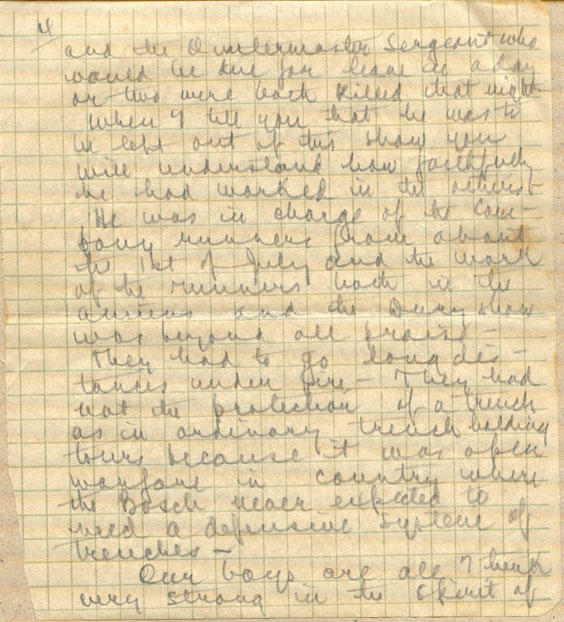 4
and the Quartermaster Sergeant who
would be due for leave in a day
or two were both killed that night
When I tell you that he was to
be left out of this show you
will understand how faithfully
he had worked in the others –
He was in charge of the Com-
pany runners from about
the 1st of July and the work
of the runners both in the
Amiens and the Dury show
was beyond all praise –
They had to go long dis-
tances under fire – They had
not the protection of a trench
as in ordinary trench holding
tours because it was open
warfare in country where
the Bosch never expected to
need a defensive system of
trenches –
Our boys are all I think
very strong in the spirit of